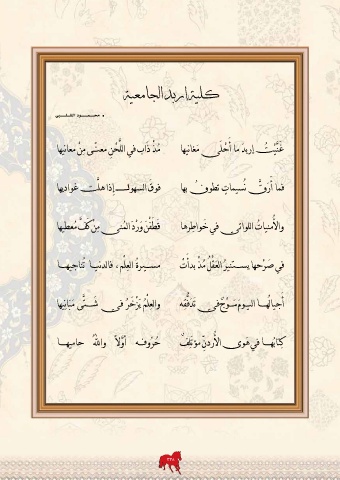 كلية إربد الجامعية
• محمود الفلبي
غَنَّيْتُ إربدَ ما أَحْلى مَغانيها مُذْ ذَابَ في اللَّحْنِ معنىً مِنْ معانيها
فما أَرَقَّ نُسيماتٍ تطوفُ بها فوقَ السهولِ إذا هلَّتْ غَواديها
والأُمنياتُ اللواتي في خَواطِرها قَطَفْنَ وَرْدَ المُنى مِنْ كفِّ مُعطيها
في صَرْحها يستنيرُ العَقْلُ مُذْ بدأتْ مسيرةُ العِلْمِ، فالدنيا تُناجيها
أجيالُها اليومَ موْجٌ في تَدَفُّقِه والعِلْمُ يَزْخَرُ في شتّى مَبَانيها
كتابُها في هَوى الأُردنّ مؤتلِفٌ حُروفه أوّلاً واللهُ حاميها
٢٢٨